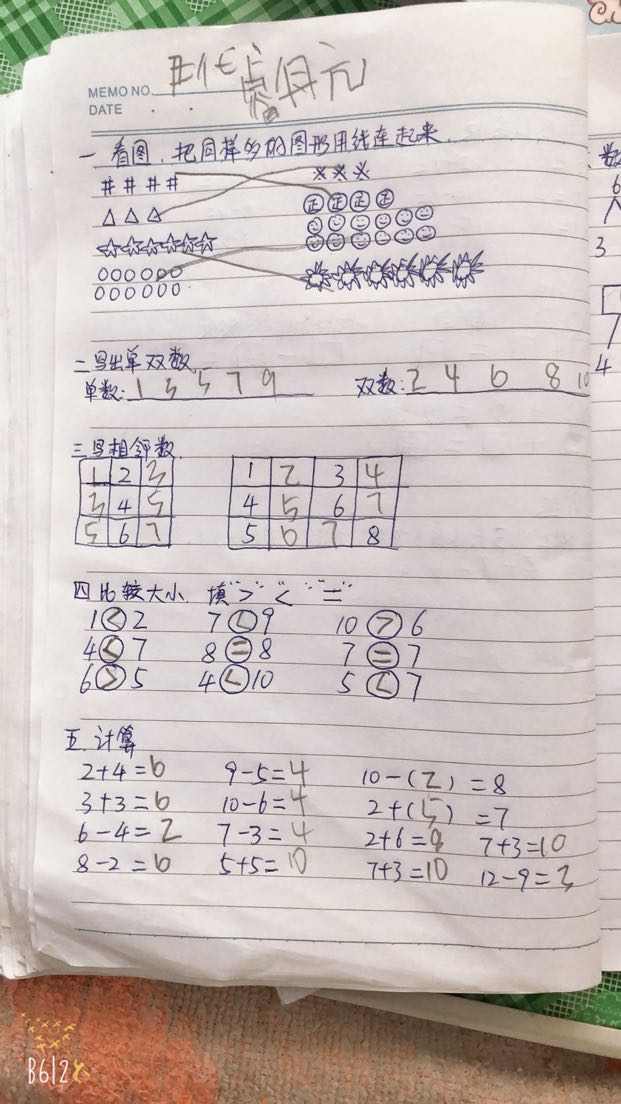 MEMO NO.
DATE
一 看图、把同样多的图形用线连起来.
# # # #
正 正 正 正
二 写出单双数
单数: 1 3 5 7 9 双数: 2 4 6 8 10
三 写相邻数
1 2 3 1 2 3 4
3 4 5 4 5 6 7
5 6 7 5 6 7 8
四 比较大小. 填">" "<" "="
1<2 7<9 10>6
4<7 8=8 7=7
6>5 4<10 5<7
五. 计算
2+4=6 9-5=4 10-(2)=8
3+3=6 10-6=4 2+(5)=7
6-4=2 7-3=4 2+6=8 7+3=10
8-2=6 5+5=10 7+3=10 12-9=3
数
6
3
7
4
B612